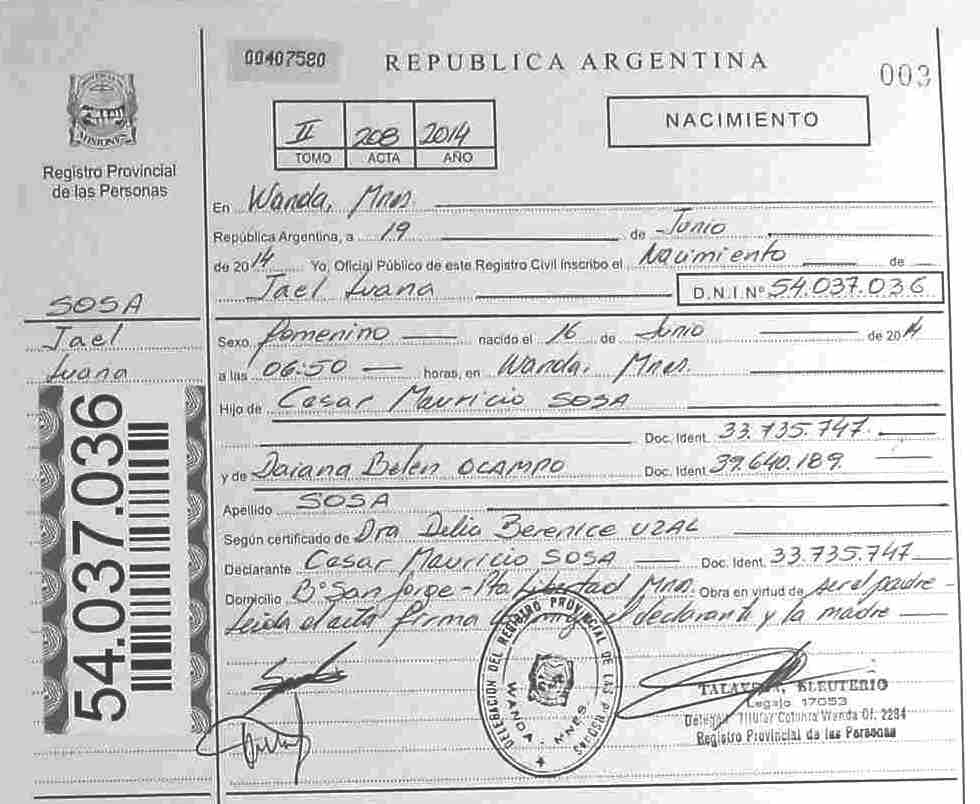 00407580
REPUBLICA ARGENTINA
003
II 208 2014
TOMO ACTA AÑO
NACIMIENTO
MISIONES
Registro Provincial
de las Personas
En Wanda, Mnes.
República Argentina, a 19 de Junio
de 2014 Yo, Oficial Público de este Registro Civil Inscribo el Nacimiento de
Jael Luana D.N.I Nº 54.037.036
SOSA
Jael
Luana
54.037.036
Sexo, femenino nacido el 16 de Junio de 2014
a las 06:50 horas, en Wanda, Mnes.
Hijo de Cesar Mauricio SOSA
Doc. Ident. 33.735.747.
y de Daiana Belen OCAMPO Doc. Ident 39.640.189.
Apellido SOSA
Según certificado de Dra Delia Berenice UZAL
Declarante Cesar Mauricio SOSA Doc. Ident. 33.735.747
Domicilio Bº San Jorge - Pto Libertad Mnes. Obra en virtud de ser el padre -
Leida el acta firma el declarante y la madre
DELEGACION DEL REGISTRO PROVINCIAL DE LAS PERSONAS
WANDA - MNES.
ELEUTERIO
Legajo 17053
Titular Colonia Wanda Of. 2284
Registro Provincial de las Personas